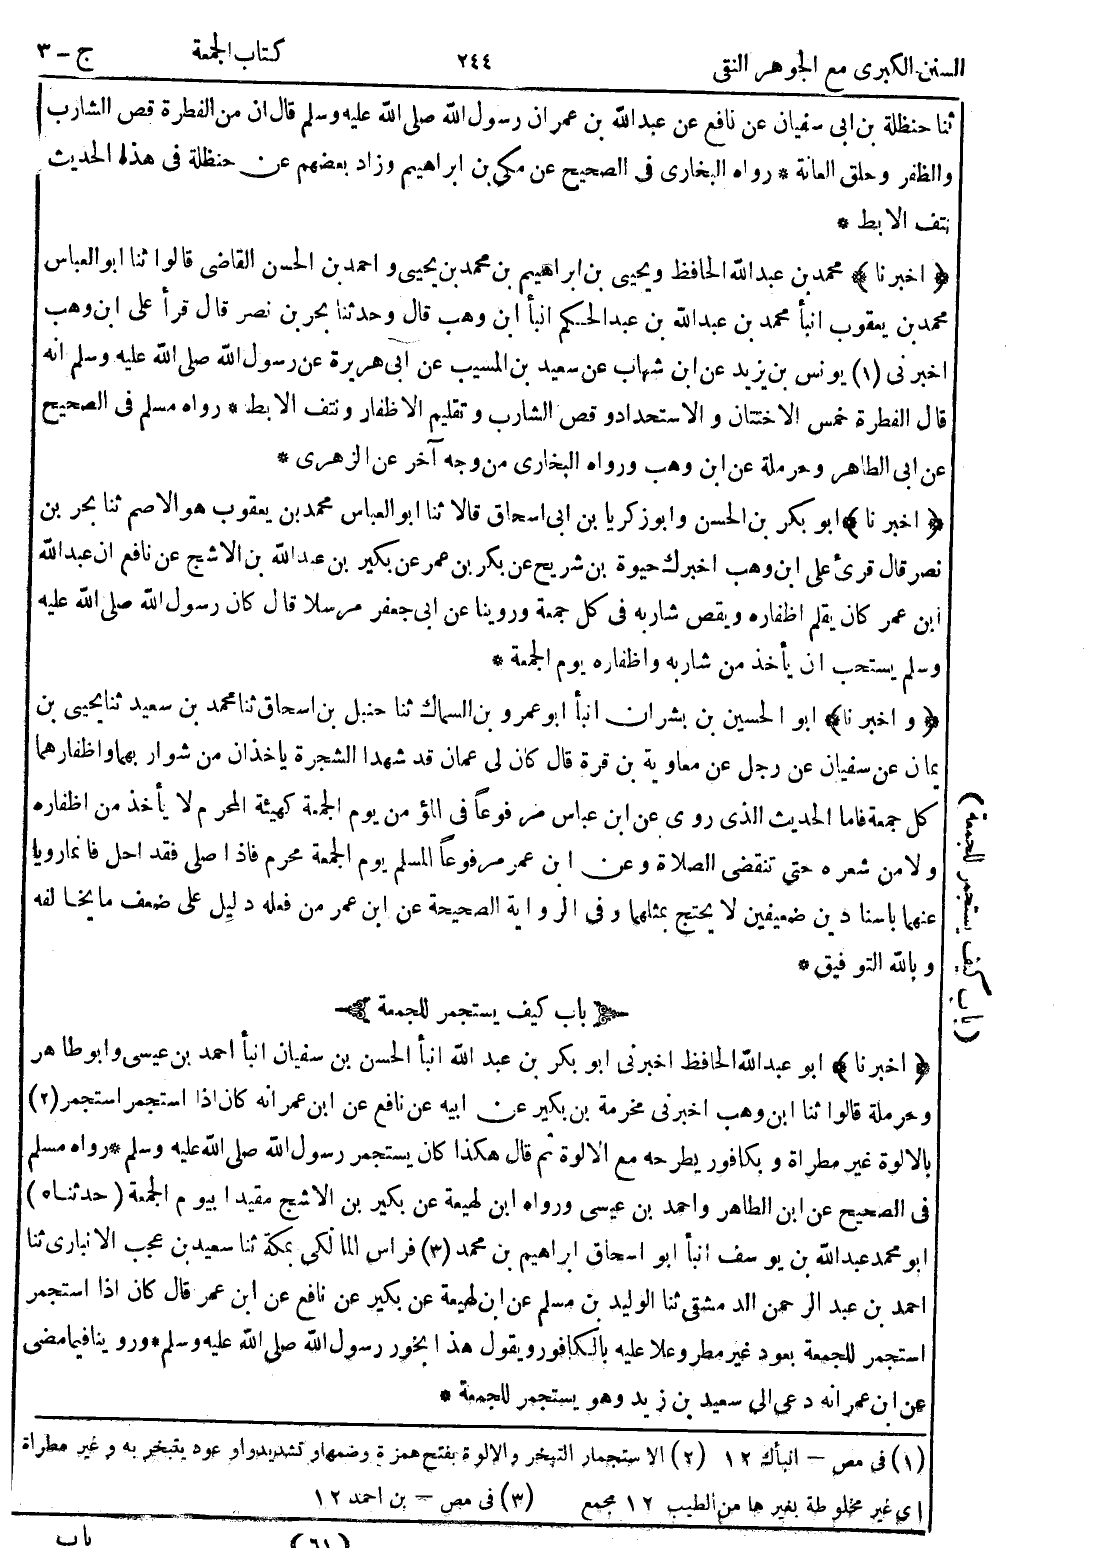 السنن الكبرى مع الجوهر النقى ٢٤٤ كتاب الجمعة ج – ٣
ثنا حنظلة بن ابى سفيان عن نافع عن عبدالله بن عمر ان رسول الله صلى الله عليه وسلم قال ان من الفطرة قص الشارب
والظفر وحلق العانة * رواه البخارى فى الصحيح عن مكى بن ابراهيم وزاد بعضهم عن حنظلة فى هذا الحديث
نتف الابط *
﴿ اخبرنا ﴾ محمد بن عبدالله الحافظ ويحيى بن ابراهيم بن محمد بن يحيى و احمد بن الحسن القاضى قالوا ثنا ابوالعباس
محمد بن يعقوب انبأ محمد بن عبدالله بن عبدالحكم انبأ ابن وهب قال وحدثنا بحر بن نصر قال قرأ على ابن وهب
اخبرنى (١) يونس بن يزيد عن ابن شهاب عن سعيد بن المسيب عن ابى هريرة عن رسول الله صلى الله عليه وسلم انه
قال الفطرة خمس الاختتان و الاستحداد و قص الشارب و تقليم الاظفار و نتف الابط * رواه مسلم فى الصحيح
عن ابى الطاهر وحرملة عن ابن وهب ورواه البخارى من وجه آخر عن الزهرى *
﴿ اخبرنا ﴾ ابو بكر بن الحسن وابو زكريا بن ابى اسحاق قالا ثنا ابوالعباس محمد بن يعقوب هو الاصم ثنا بحر بن
نصر قال قرئ على ابن وهب اخبرك حيوة بن شريح عن بكر بن عمر عن بكير بن عبدالله بن الاشج عن نافع ان عبدالله
ابن عمر كان يقلم اظفاره ويقص شاربه فى كل جمعة وروينا عن ابى جعفر مرسلا قال كان رسول الله صلى الله عليه
وسلم يستحب ان يأخذ من شاربه واظفاره يوم الجمعة *
﴿ و اخبرنا ﴾ ابو الحسين بن بشران انبأ ابو عمرو بن السماك ثنا حنبل بن اسحاق ثنا محمد بن سعيد ثنا يحيى بن
يمان عن سفيان عن رجل عن معاوية بن قرة قال كان لى عمان قد شهدا الشجرة ياخذان من شواربهما واظفارهما
كل جمعة فاما الحديث الذى روى عن ابن عباس مرفوعاً فى المؤمن يوم الجمعة كهيئة المحرم لا يأخذ من اظفاره
ولا من شعره حتى تنقضى الصلاة وعن ابن عمر مرفوعاً المسلم يوم الجمعة محرم فاذا صلى فقد احل فانما رويا
عنهما باسنادين ضعيفين لا يحتج بمثلهما وفى الرواية الصحيحة عن ابن عمر من فعله دليل على ضعف ما يخالفه
وبالله التوفيق *
باب كيف يستجمر للجمعة
(باب كيف يستجمر للجمعة)
﴿ اخبرنا ﴾ ابو عبدالله الحافظ اخبرنى ابو بكر بن عبد الله انبأ الحسن بن سفيان انبأ احمد بن عيسى وابو طاهر
وحرملة قالوا ثنا ابن وهب اخبرنى مخرمة بن بكير عن ابيه عن نافع عن ابن عمر انه كان اذا استجمر استجمر (٢)
بالالوة غير مطراة و بكافور يطرحه مع الالوة ثم قال هكذا كان يستجمر رسول الله صلى الله عليه وسلم * رواه مسلم
فى الصحيح عن ابن الطاهر واحمد بن عيسى ورواه ابن لهيعة عن بكير بن الاشج مقيدا بيوم الجمعة (حدثناه)
ابو محمد عبدالله بن يوسف انبأ ابو اسحاق ابراهيم بن محمد (٣) فراس المالكى بمكة ثنا سعيد بن عجب الانبارى ثنا
احمد بن عبد الرحمن الدمشقى ثنا الوليد بن مسلم عن ابن لهيعة عن بكير عن نافع عن ابن عمر قال كان اذا استجمر
استجمر للجمعة بعود غير مطر وعلا عليه بالكافور ويقول هذا بخور رسول الله صلى الله عليه وسلم * وروينا فيما مضى
عن ابن عمر انه دعى الى سعيد بن زيد وهو يستجمر للجمعة *
(١) فى مص – انبأك ١٢ (٢) الاستجمار التبخر والالوة بفتح همزة وضمها و تشديد واو عود يتبخر به و غير مطراة
اى غير مخلوطة بغيرها من الطيب ١٢ مجمع (٣) فى مص – بن احمد ١٢
(٦١) باب